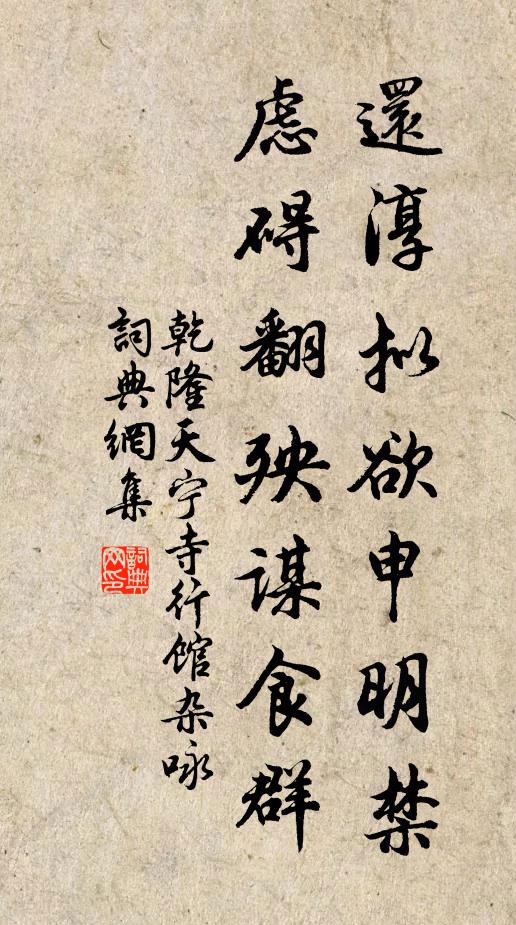 還淳拟欲申明禁
慮碍翻殃谋食群
乾隆天宁寺行馆杂咏
詞典網集
詞典
网印